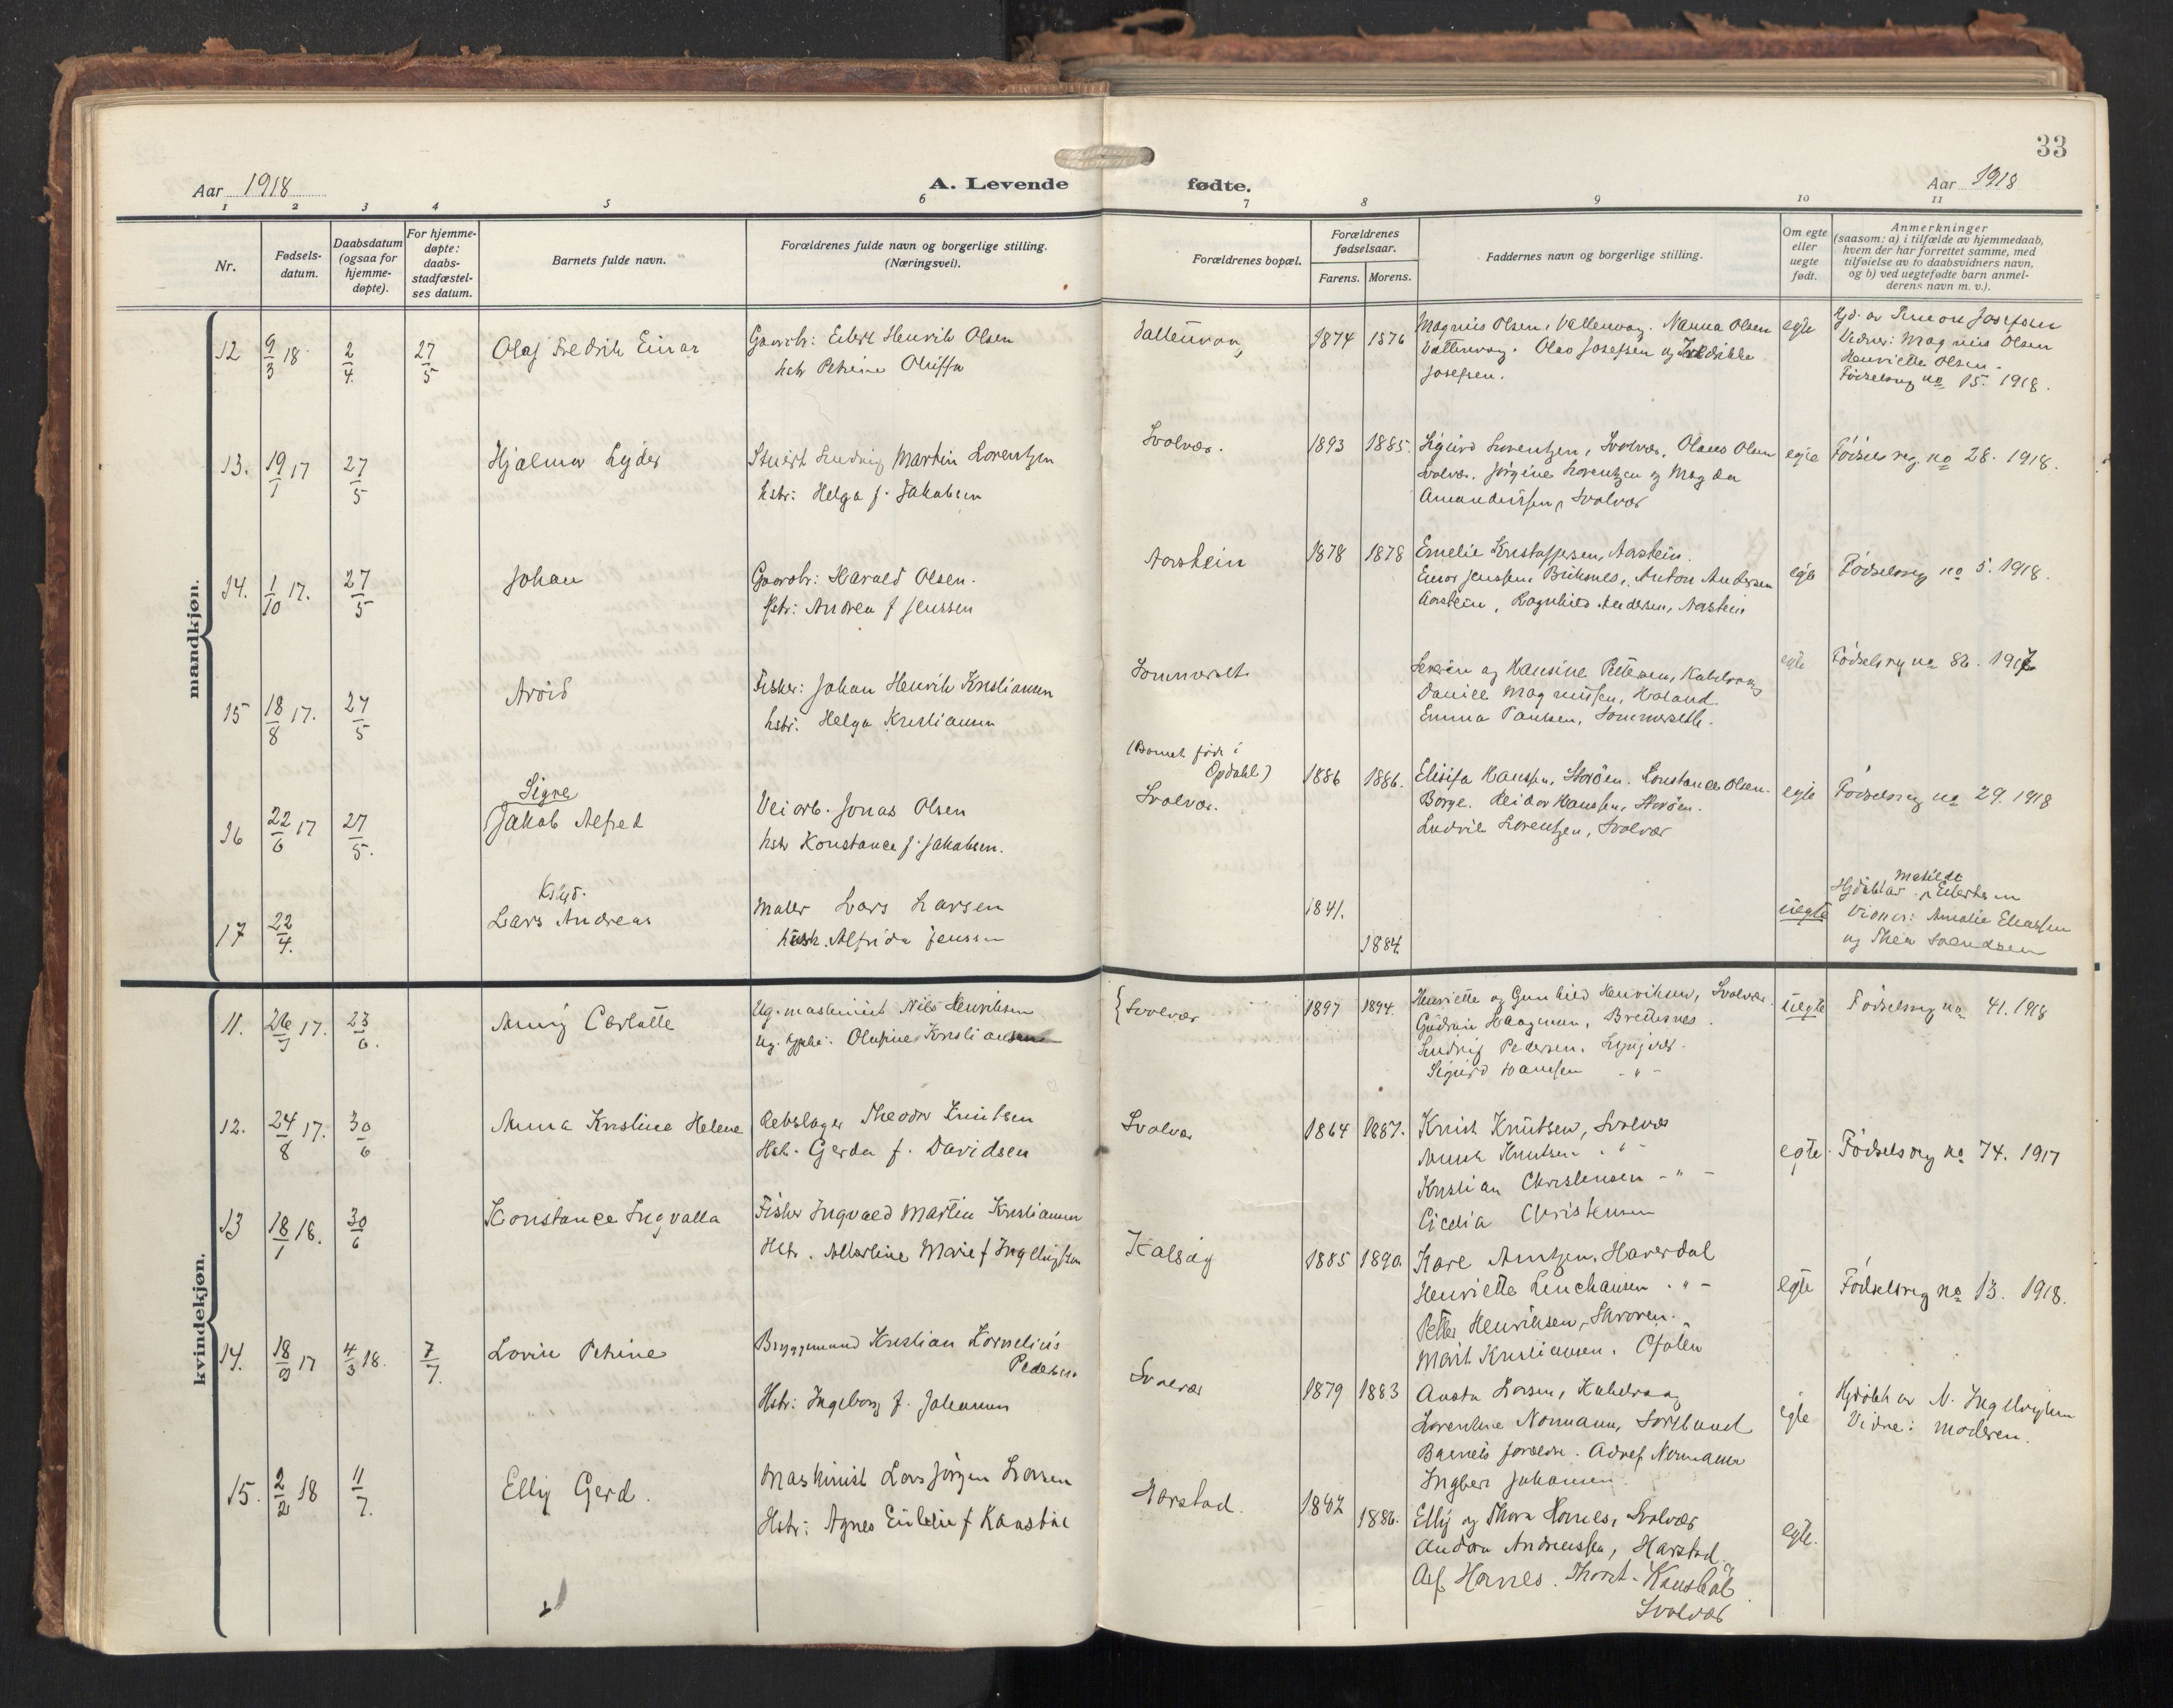 33
Aar 1918
A. Levende fødte.
Aar 1918
1 2 3 4 5 6 7 8 9 10 11
Nr.
Fødsels-
datum.
Daabsdatum
(ogsaa for
hjemme-
døpte).
For hjemme-
døpte:
daabs-
stadfæstel-
ses datum.
Barnets fulde navn.
Forældrenes fulde navn og borgerlige stilling.
(Næringsvei).
Forældrenes bopæl.
Forældrenes
fødselsaar.
Farens. Morens.
Faddernes navn og borgerlige stilling.
Om egte
eller
uegte
født.
Anmerkninger
(saasom: a) i tilfælde av hjemmedaab,
hvem der har forrettet samme, med
tilføielse av to daabsvidners navn,
og b) ved uegtefødte barn anmel-
derens navn m. v.).
mandkjøn.
12 9/3 18. 2/4. 27/5
Olaf Fredrik Einar
Gaardbr: Eilert Henrik Olsen
hstr Petrine Oluffa
1874 1876
Magnus Olsen, Vattervaag. Nanna Olsen
Vattervaag. Olav Josefsen og Fredrikke
Josefsen.
egte
Hjd. av Simon Josefsen
Vidner: Magnus Olsen
Henriette Olsen.
Fødselsreg no 15. 1918.
13. 19/1 17 27/5
Hjalmar Lyder
Ludvig Martin Lorentzen
hstr: Helga f. Jakobsen
Svolvær.
1893 1885.
Sigurd Lorentzen, Svolvær, Olaus Olsen
Svolvær. Jørgine Lorentzen og Magda
Amandussen, Svolvær
egte
Fødselsreg. no 28. 1918.
14. 1/10 17. 27/5
Johan
Gaardbr: Harald Olsen.
Hstr: Andrea f Jenssen
Aarstein
1878 1878
Emelie Kristoffersen, Aarstein.
Einar Jenssen, Anton Andersen
Aarstein, Ragnhild Andersen, Aarstein
egte
Fødselsreg no 5. 1918.
15 18/8 17. 27/5
Arvid
Fisker: Johan Henrik Kristiansen
hstr: Helga Kristiansen
og Hansine Pettersen, Kabelvaag
Daniel Magnussen, Hroland.
Emma Paulsen,
egte
Fødselsreg no 86. 1917
16 22/6 17 27/5.
Signe
Jakob Alfred
Veiarb. Jonas Olsen
hstr Konstance f. Jakobsen.
(Barnet født i
Opdahl)
Svolvær.
1886 1886.
Elisifa Hanssen, Storøen. Konstance Olsen.
Borge. Reidar Hanssen, Storøen.
Ludvik Lorentzen, Svolvær
egte
Fødselsreg no 29. 1918
17 22/4.
Lars Andreas
Maler Lars Larsen
Alfrida Jenssen
1841.
1884.
uegte
Matilde
Hjdøbt av Eilertsen
Vidner: Amalie Eliassen
og Thea Svendsen
kvindekjøn.
11. 17. 23/6.
Anny Charlotte
Ug. maskinist Nils Henriksen
Ug. Olufine Kristiansen
Svolvær
1897 1894.
Henriette og Gunhild Henriksen, Svolvær.
Gudrun Haagensen,
Ludvig Pedersen.
Sigurd Hansen - " -
uegte
Fødselsreg no 41. 1918
12. 24/8 17. 30/6
Anna Kristine Helene
Rebslager Theodor Knutsen
Hstr. Gerda f. Davidsen
Svolvær
1864 1887.
Knut Knutsen, Svolvær
Anna Knutsen - " -
Kristian Christensen - " -
Cicelia Christensen
egte.
Fødselsreg no 74. 1917
13 18/1 18. 30/6
Konstance Ingvalla
Fisker Ingvald Martin Kristiansen
Hstr. Albertine Marie f Ingebrigtsen
Kalsåg
1885 1890.
Kare Arntzen, Haverdal
Henriette - " -
Petter Henriksen, Skroven.
Marit Kristiansen.
egte
Fødselsreg no 13. 1918.
14. 18/9 17 4/3 18. 7/7.
Lovise Petrine
Bryggemand Kristian Kornelius
Pedersen
Hstr: Ingeborg f. Johansen
Svolvær
1879 1883
Aasta Larsen, Kabelvaag
Lorentine Normann, Sortland
Barnets forældre. Adolf Normann
Ingber Johansen
egte
Hjdøbt av N. Ingebrigtsen
Vidne: Moderen.
15. 2/2 18 11/7.
Elly Gerd.
Maskinist Lars Jørgen Larsen
Hstr: Agnes Emilie f Kaasbøl
Harstad.
1886.
Elly og Thora Hornes, Svolvær
Andora Andreassen, Harstad.
Alf Hornes. Kaasbøl
Svolvær
egte.